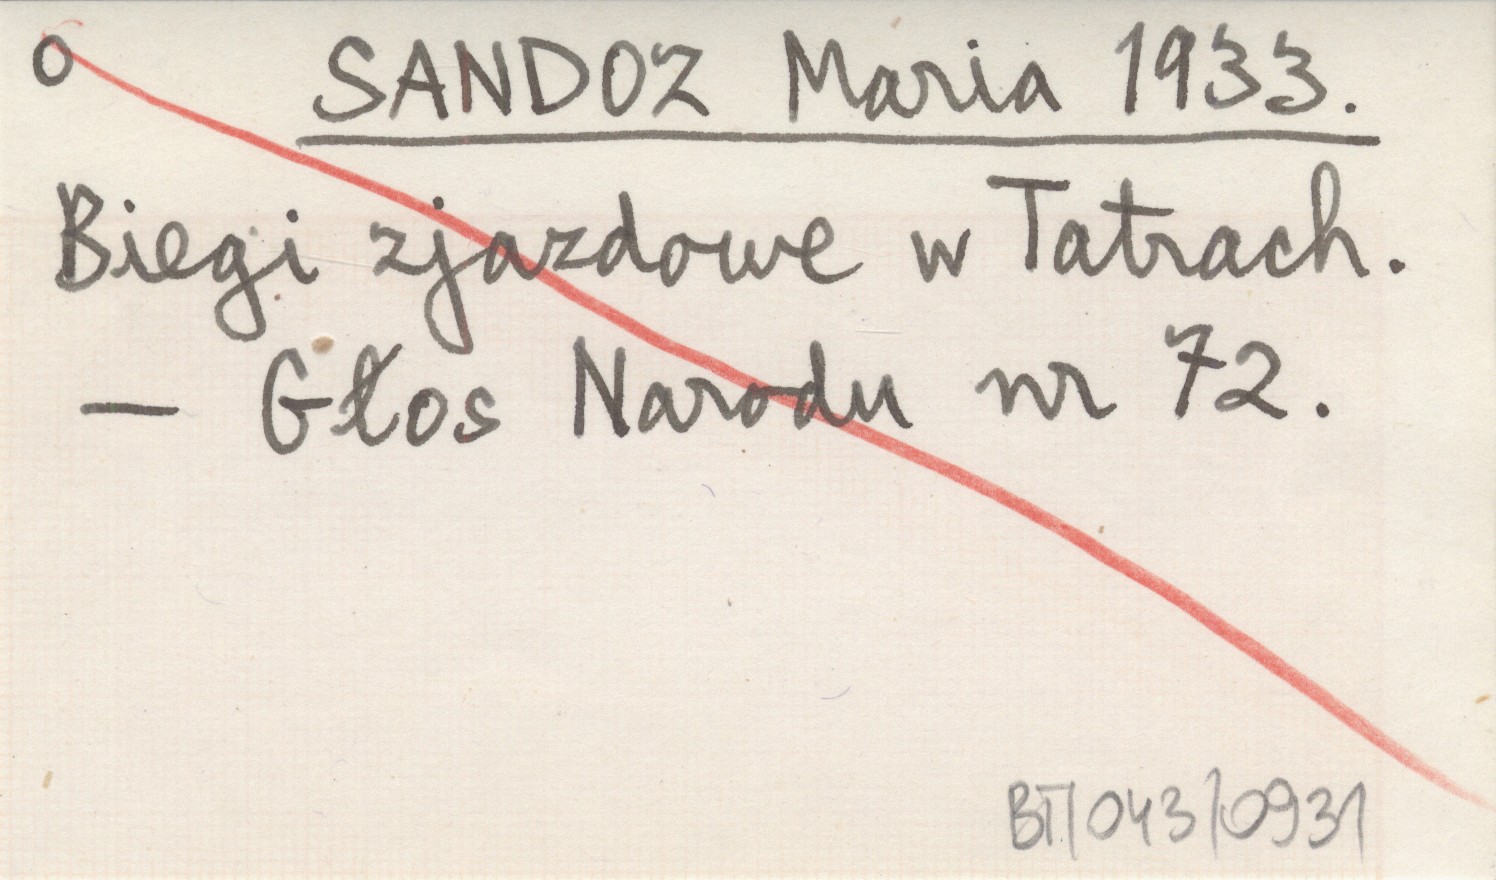 o SANDOZ Maria 1933.
Biegi zjazdowe w Tatrach.
— Głos Narodu nr 72.
BT/043/0931